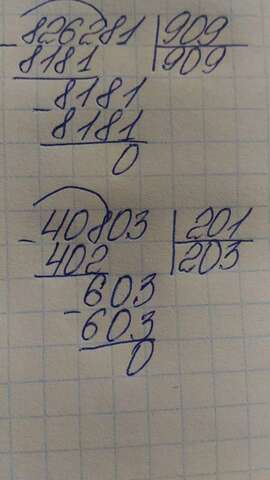 - 826281 | 909
8181 | 909
- 8181
8181
0
- 40803 | 201
402 | 203
- 603
603
0